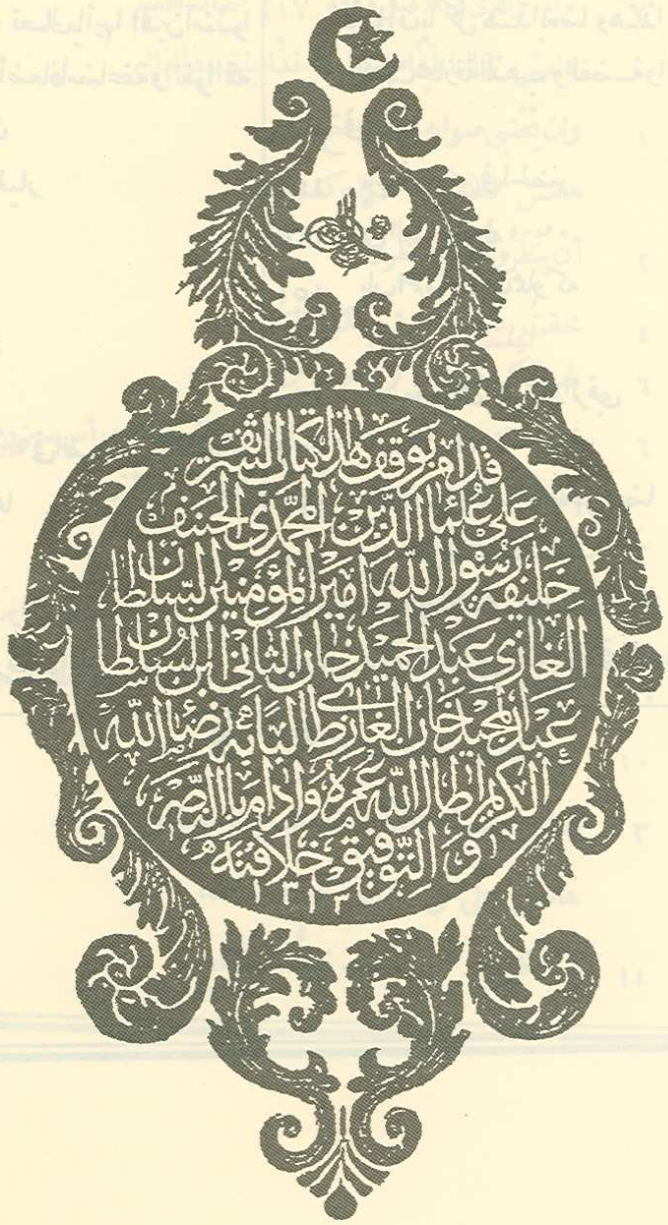 قد امر بوقف هذا الكتاب الشريف
على علما الدين المحمدى الحنيف
خليفة رسول الله امير المؤمنين السلطان
الغازى عبد الحميد خان الثانى ابن السلطان
عبد المجيد خان الغازى طالبا به رضاء الله
الكريم اطال الله عمره وادام بالنصر
و التوفيق خلافته
١٣١٣